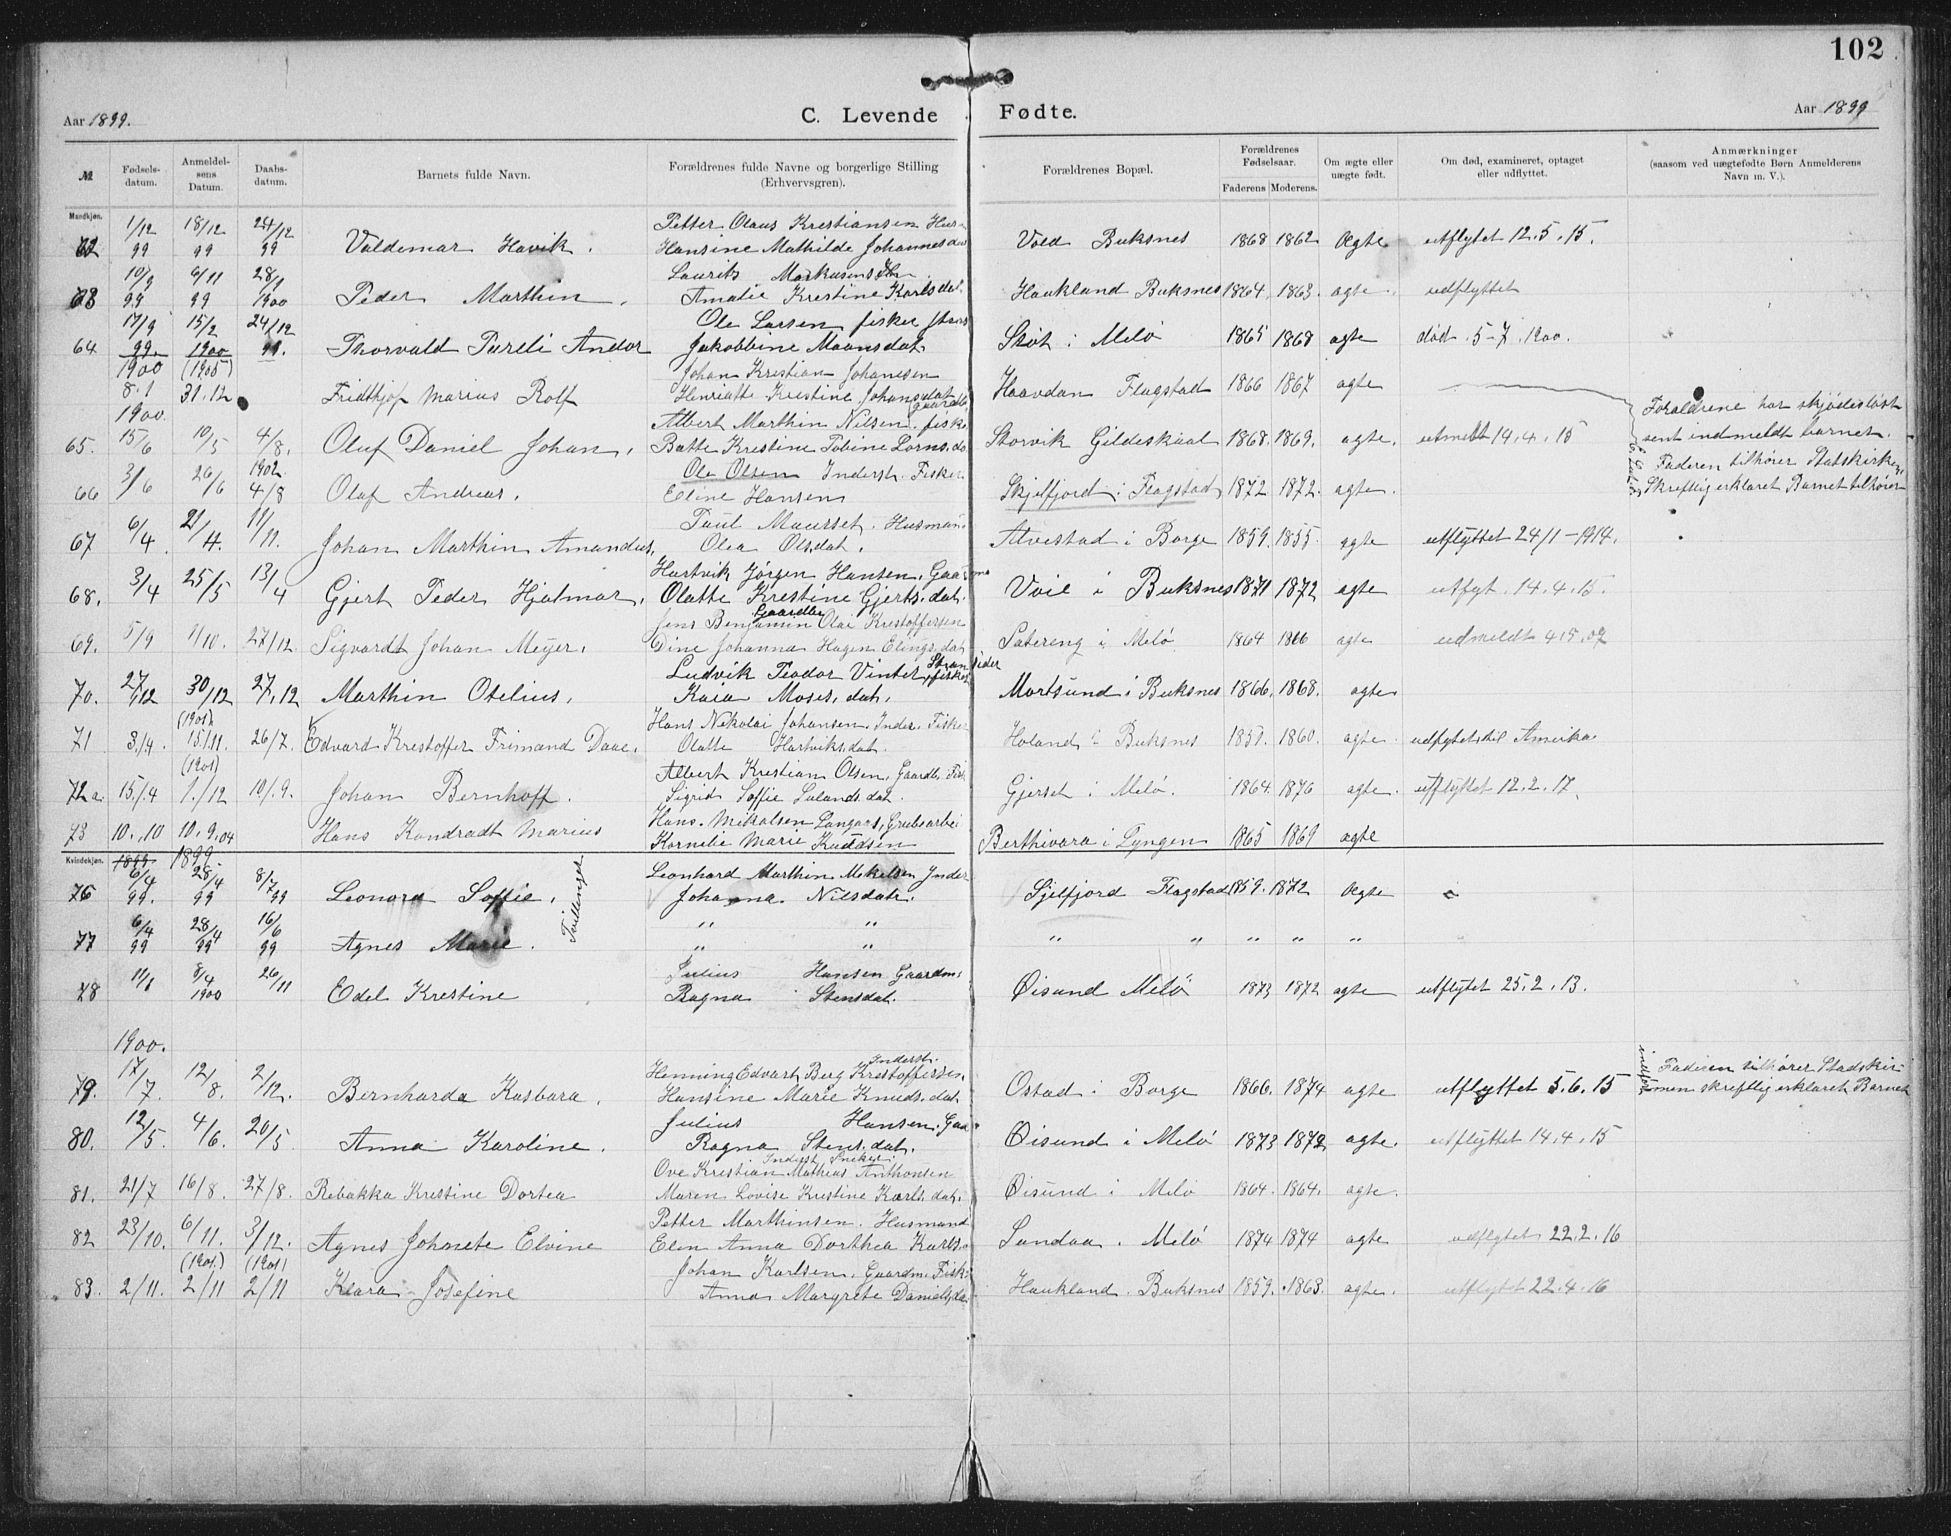 102
Aar 1899. C. Levende Fødte. Aar 1899
№ Fødsels-datum. Anmeldel-sens Datum. Daabs-datum. Barnets fulde Navn. Forældrenes fulde Navne og borgerlige Stilling (Erhvervsgren). Forældrenes Bopæl. Forældrenes Fødselsaar. Faderens Moderens. Om ægte eller uægte født. Om død, examineret, optaget eller udflyttet. Anmærkninger (saasom ved uægtefødte Børn Anmelderens Navn m. V.).
Mandkjøn.
1/12 18/12 24/12 Petter Olaus Krestiansen Hus
62 99 99 99 Valdemar Havik. Hansine Mathilde Johannesdat Vold Buksnes 1868 1862 Ægte utflytet 12.5.15.
10/9 6/11 28/1 Laurits Markusen
63 99 99 1900 Peder Marthin. Amalie Krestine Karlsdat. Haukland Buksnes 1864. 1863. ægte. udflyttet
17/9 15/2 24/12 Ole Larsen fisker
64 99. 1900 99. Thorvald Pareli Andor Jakobbine Maansdat Støt i Melø 1865 1868 ægte død 5-7.1900.
1900 (1905) Johan Kristian Johansen
8.1 31.12 Fridthjof Marius Rolf Henriette Krestine Johansdat Haavdan Flagstad 1866 1867 ægte
1900. Albert Marthin Nilsen. fisk. Foraldrene har skjødesløst
65. 15/6 10/5 4/8. Oluf Daniel Johan. Batte Krestine Tobine Lorns.da Storvik Gildeskaal 1868. 1869. ægte. utmeldt 14.4.15 sent indmeldt barnet.
1902 Ole Olsen Inderst. Fisker Faderen tilhører Statskirken,
66 3/6 26/6 4/8 Olaf Andreas. Eline Hansen Skjelfjord i Flagstad 1872 1872. ægte. Skreftlig erklaret Barnet tilhører
Paul Maurset. Husman
67 6/4 21/4. 11/11. Johan Marthin Amandus. Olea Olsdat. Alvestad i Borge 1859. 1855. ægte utflyttet 24/1-1914.
Hartvik Jørgen Hansen. Gaardma
68. 3/4 25/5 13/4 Gjert Peder Hjalmar. Olatte Krestine Gjerts.dat. Voie i Buksnes 1871 1872 ægte utflyt. 14.4.15.
Gaardbr
Jens Benjamin Olai Krestoffersen
69. 5/9 1/10. 27/12. Sigvardt Johan Meyer. Dine Johanna Hagen Elings.dat Satereng i Melø. 1864 1866 ægte udmeldt 4.5.07
Ludvik Teodor Vinter, Strandsider fisker
70. 27/12 30/12 27/12 Marthin Otelius. Kaia Moses.dat. Mortsund i Buksnes 1866. 1868. ægte
(1901) Hans Nikolai Johansen. Inder. Fisker
71 3./4. 15/11. 26/7. Edvard Krestoffer Frimand Daae. Olatte Hartviksdat. Holand i Buksnes 1857. 1860. ægte. udflytet til Amerika
(1901) Albert Krestian Olsen, Gaardb. Fisk.
72a. 15./4 1./12 10/.9. Johan Bernhoff. Sigrid Soffie Salands.dat. Gjerset i Melø. 1864. 1876 ægte. utflyttet 12.2.17.
Hans. Mikalsen Langaas, Grubearbei
73 10.,10 10.9.04 Hans Kondradt Marius Kornelie Marie Knudsen Berthivara i Lyngen 1865 1869 ægte
Kvindekjøn. 1899 1899
6/4 28/4 8/7 Leonhard Marthin Mekelsen Inder
76 99. 99 99 Leonora Soffie. Johanna Nilsdat. Sjelfjord Flagstad 1859. 1872 Ægte
Tvillinger
6/4 28/4 16/6 " "
77 99 99 99 Agnes Marie. " " " " " " "
11/6 8/4 26/11 Julius Hansen Gaardm.
78 1900 Edel Krestine Ragna Stensdat. Øisund Melø 1873 1872 ægte utflytet 25.2.13.
1900. Inderst.
Henning Edvart Berg Krestoffersen. Faderen tilhører Stadskir-
79. 17/7. 12/8. 2/12. Bernharda Kasbara. Hansine Marie Knuds.dat Ostad i Borge 1866. 1874 ægte utflyttet 5.6.15 men skreftlig erklaret Barnet
Julius Hansen. Gaa
80. 12/5 4/6. 20/5 Anna Karoline. Ragna Stens.dat. Øisund i Melø 1873 1872 ægte. utflyttet 14.4.15
Inderst Sneker.
Ove Kristian Mathias Anthonsen
81. 21/7 16/8. 27/8. Rebakka Krestine Dortea Maren Lovise Krestine Karls.dat. Øisund i Melø 1864. 1864. ægte.
Petter Marthinsen. Husmand
82 23/10. 6/11. 3/12. Agnes Johnete Elvine Elen Anna Dorthea Karls. Sandaa. Melø 1874 1874 ægte udflytet 22.2.16
(1901) (1901) Johan Karlsen. Gaardm. Fisk.
83. 2/11. 2/11 2/11 Klara Josefine Anna Margrete Daniels.da. Haukland. Buksnes 1859. 1863. ægte. utflytet 22.4.16